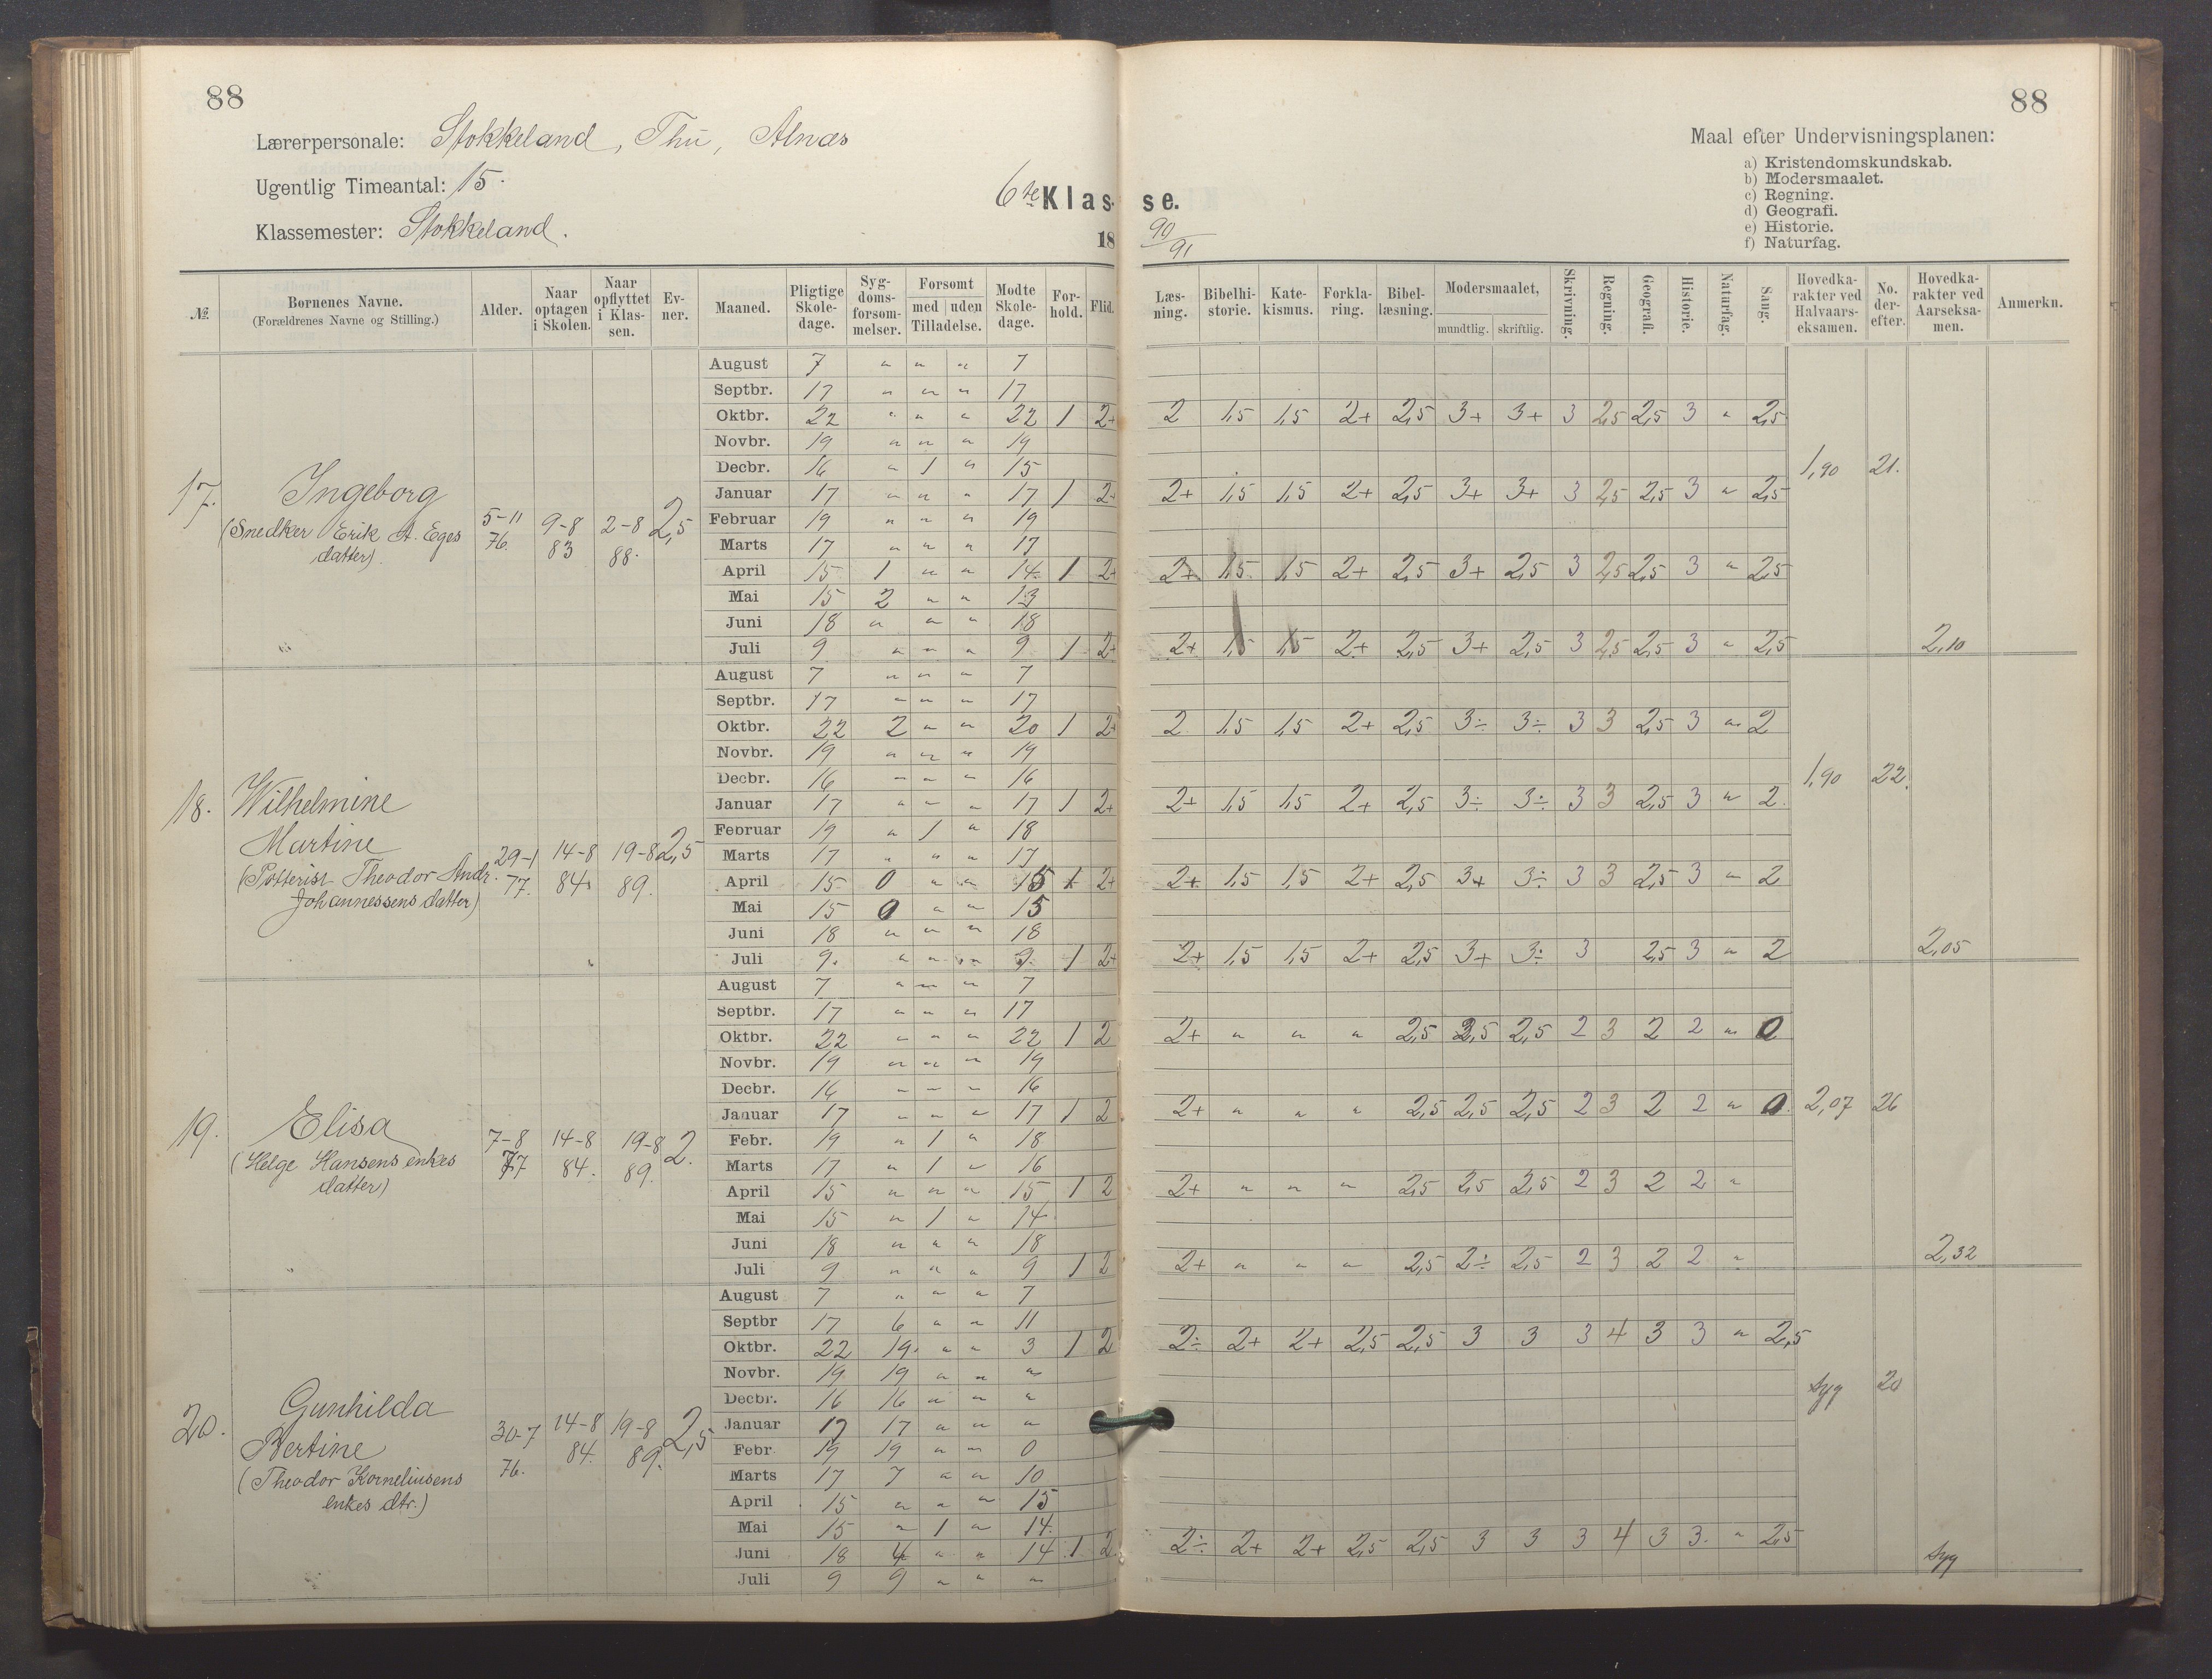 88
88
Lærerpersonale: Stokkeland, Thu, Alnæs
Ugentlig Timeantal: 15.
Klassemester: Stokkeland.
6te Klas- se.
18 90/91
Maal efter Undervisningsplanen:
a) Kristendomskundskab.
b) Modersmaalet.
c) Regning.
d) Geografi.
e) Historie.
f) Naturfag.
№. Børnenes Navne. (Forældrenes Navne og Stilling.) Alder. Naar optagen i Skolen. Naar opflyttet i Klassen. Evner. Maaned. Pligtige Skoledage. Sygdomsforsømmelser. Forsømt med uden Tilladelse. Mødte Skoledage. Forhold. Flid. Læsning. Bibelhistorie. Katekismus. Forklaring. Bibellæsning. Modersmaalet, mundtlig. skriftlig. Skrivning. Regning. Geografi. Historie. Naturfag. Sang. Hovedkarakter ved Halvaarseksamen. No. derefter. Hovedkarakter ved Aarseksamen. Anmerkn.
17. Ingeborg
(Snedker Erik A. Eges
datter)
5-11 76. 9-8 83 2-8 88. 2,5
August 7 " " " 7
Septbr. 17 " " " 17
Oktbr. 22 " " " 22 1 2+ 2 1,5 1,5 2+ 2,5 3+ 3+ 3 2,5 2,5 3 " 2,5
Novbr. 19 " " " 19
Decbr. 16 " 1 " 15 1,90 21.
Januar 17 " " " 17 1 2+ 2+ 1,5 1,5 2+ 2,5 3+ 3+ 3 2,5 2,5 3 " 2,5
Februar 19 " " " 19
Marts 17 " " " 17
April 15 1 " " 14 1 2+ 2+ 1,5 1,5 2+ 2,5 3+ 2,5 3 2,5 2,5 3 " 2,5
Mai 15 2 " " 13
Juni 18 " " " 18
Juli 9 " " " 9 1 2+ 2+ 1,5 1,5 2+ 2,5 3+ 2,5 3 2,5 2,5 3 " 2,5 2,10
18. Wilhelmine
Martine
(Potterist Theodor Andr.
Johannessens datter)
29-1 77. 14-8 84 19-8 89. 2,5
August 7 " " " 7
Septbr. 17 " " " 17
Oktbr. 22 2 " " 20 1 2+ 2 1,5 1,5 2+ 2,5 3÷ 3÷ 3 3 2,5 3 " 2
Novbr. 19 " " " 19
Decbr. 16 " " " 16 1,90 22.
Januar 17 " " " 17 1 2+ 2+ 1,5 1,5 2+ 2,5 3÷ 3÷ 3 3 2,5 3 " 2.
Februar 19 " 1 " 18
Marts 17 " " " 17
April 15 0 " " 15 1 2+ 2+ 1,5 1,5 2+ 2,5 3+ 3÷ 3 3 2,5 3 " 2
Mai 15 0 " " 15
Juni 18 " " " 18
Juli 9. " " " 9. 1 2+ 2+ 1,5 1,5 2+ 2,5 3+ 3÷ 3 2,5 3 " 2 2,05
19. Elisa
(Helge Hansens enkes
datter)
7-8 77 14-8 84. 19-8 89. 2.
August 7 " " " 7
Septbr. 17 " " " 17
Oktbr. 22 " " " 22 1 2 2+ " " " 2,5 2,5 2,5 2 3 2 2 " 0
Novbr. 19 " " " 19
Decbr. 16 " " " 16
Januar 17 " " " 17 1 2 2+ " " " 2,5 2,5 2,5 2 3 2 2 " 0. 2,07 26
Febr. 19 " 1 " 18
Marts 17 " 1 " 16
April 15 " " " 15 1 2 2+ " " " 2,5 2,5 2,5 2 3 2 2 "
Mai 15 " 1 " 14
Juni 18 " " " 18
Juli 9 " " " 9 1 2 2+ " " " 2,5 2÷ 2,5 2 3 2 2 " 2,32
20. Gunhilda
Bertine
(Theodor Korneliusens
enkes dtr.)
30-7 76. 14-8 84. 19-8 89. 2,5
August 7 " " " 7
Septbr 17 6 " " 11
Oktbr. 22 19. " " 3 1 2 2÷ 2+ 2+ 2,5 2,5 3 3 3 4 3 3 " 2,5
Novbr. 19 19 " " "
Decbr. 16 16 " " " syg 20
Januar 17 17 " " "
Febr 19 19 " " 0
Marts 17 7 " " 10
April 15 " " " 15
Mai 15 " 1 " 14.
Juni 18 4 " " 14 1 2 2÷ 2+ 2+ 2,5 2,5 3 3 3 4 3 3. " 2,5
Juli 9 9 " " " syg